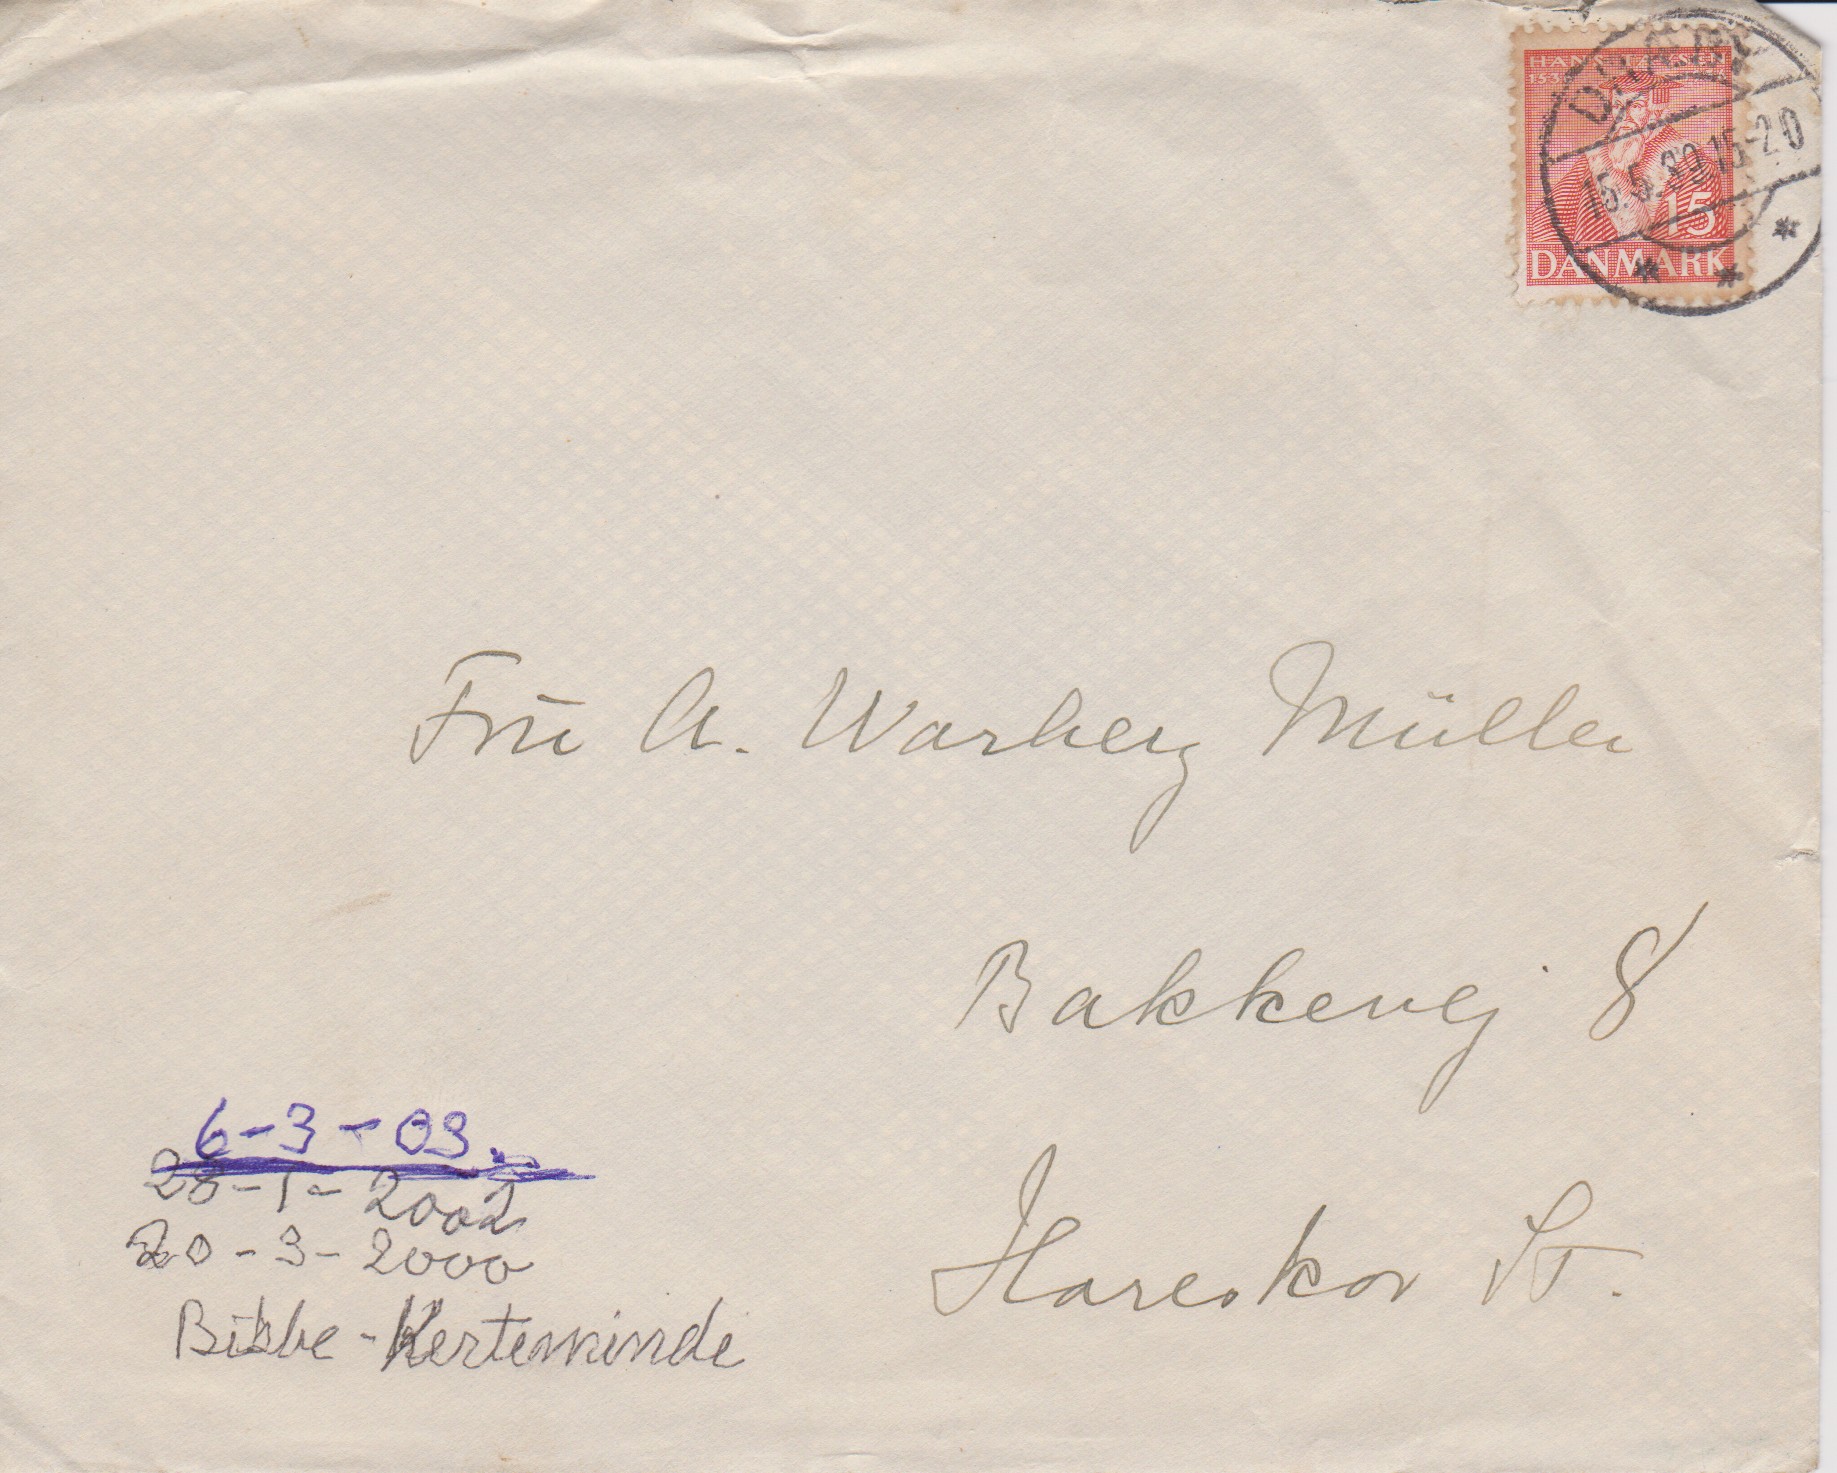 HANS TAVSEN
153
15
DANMARK
15-20
Frū A. Warberg Müller
Bakkevej 8
Hareskov St.
6-3-03.
28-1-2002
20-3-2000
Bibbe - Kerteminde